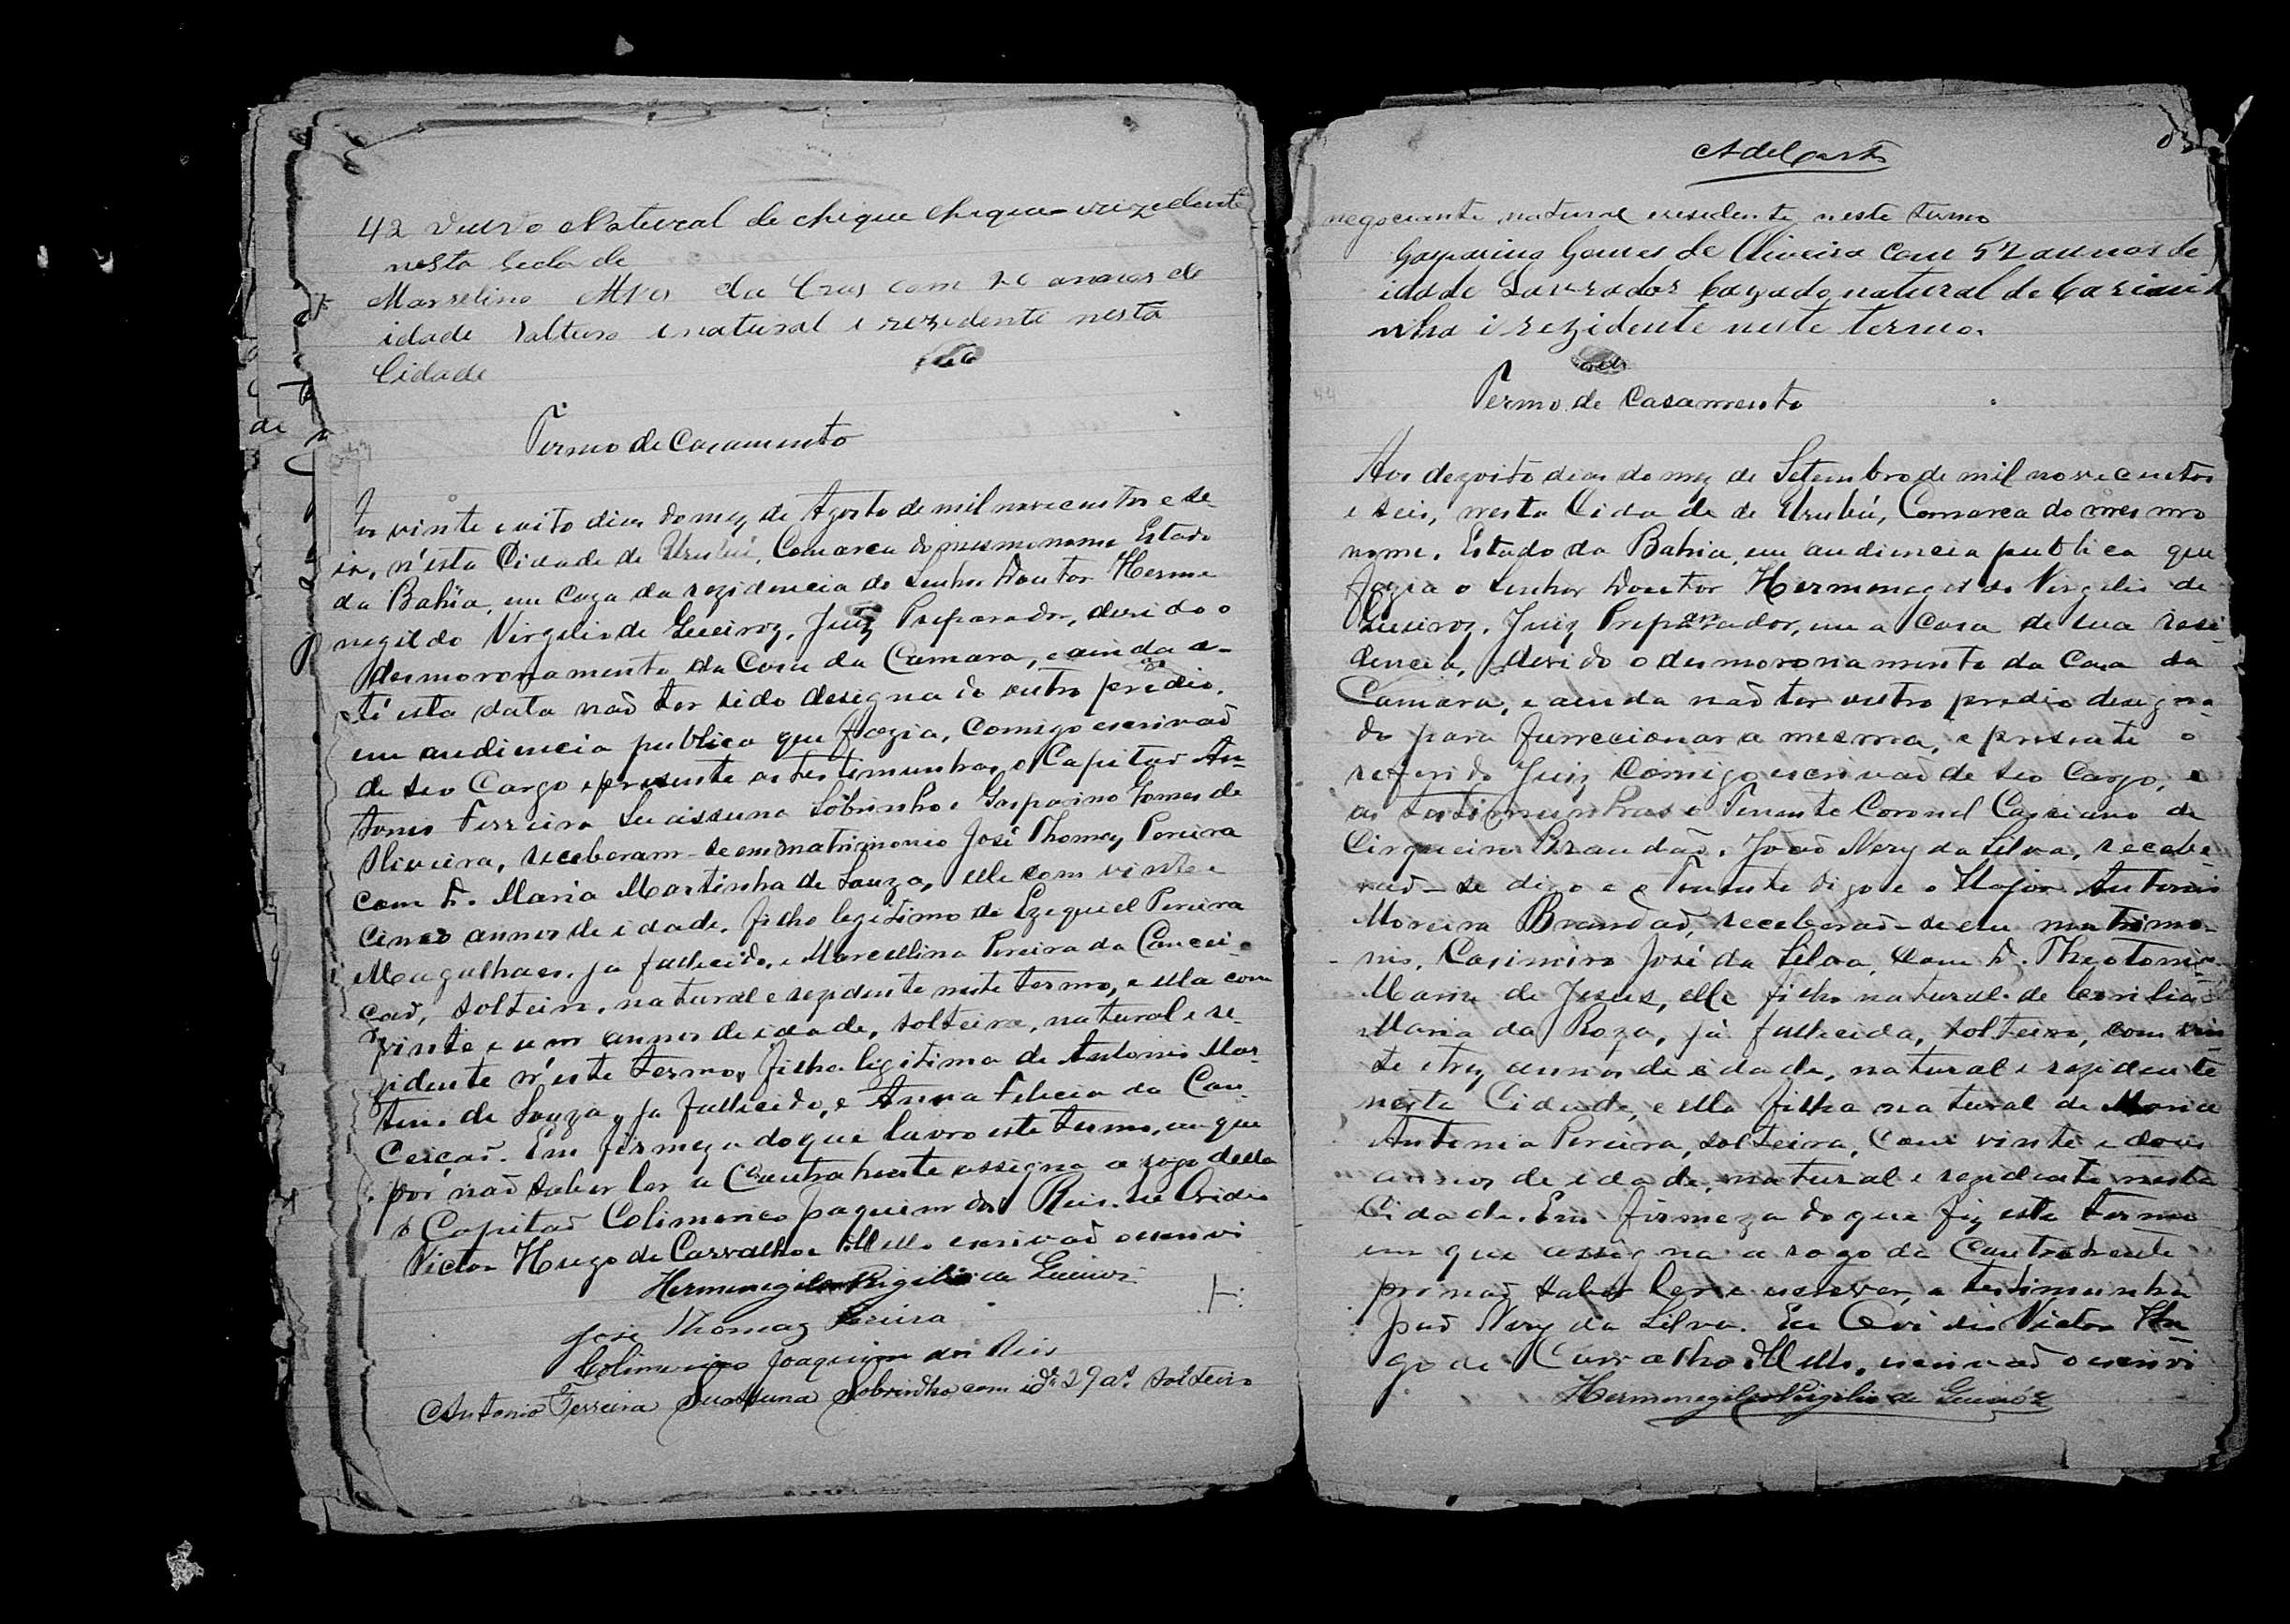 42 viuvo Natural de chique chique rezidente
nesta Cidade
Marselino Alves da Cruz com 26 annos de
idade soltero e natural e rezidente nesta
Cidade
Termo de Casamento
Aos vinte e oito dias do mez de Agosto de mil novecentos e se-
is, n'esta Cidade de Urubú, Comarca do mesmo nome Estado
da Bahia, em caza da rezidencia do Senhor Doutor Herme
negildo Virgilio de Queiroz, Juiz Preparador, devido o
desmoronamento da Casa da Camara, e ainda a-
té esta data não ter sido designado outro predio,
em audiencia publica que fazia, comigo escrivaõ
de seo Cargo e presente as testimunhas o Capitaõ An-
tonio Ferreira Suaissuna Sobrinho e Gasparino Gomes de
Oliveira, receberam-se em matrimonio José Thomaz Pereira
com D. Maria Martinha de Souza, elle com vinte e
cinco annos de idade, filho legitimo de Ezequiel Pereira
Magalhaes, ja fallecido, e Marcellina Pereira da Concei-
çaõ, solteiro, natural e rezidente neste termo, e ella com
vinte e um annos de idade, solteira, natural e re-
zidente n'este termo, filha legitima de Antonio Mar-
tins de Souza, ja fallecido, e Anna Felicia da Con-
ceiçaõ. Em firmeza do que lavro este termo, em que
por naõ saber ler a Contrahente assigna a rogo della
o Capitaõ Colimerico Joaquim dos Reis. Eu Ovidio
Victor Hugo de Carvalho e Mello escrivaõ o escrivi
Hermenegildo Virgilio de Queiroz
José Thomaz Pereira
Colimerico Joaquim dos Reis
Antonio Ferreira Suassuna Sobrinho com id.e 29 as. solteiro
Adelgasto
negociante natural e residente neste termo
Gasparino Gomes de Oliveira com 52 annos de
idade Lavrador Cazado natural de Carinha
nha i rezidente neste termo.
Termo de Casamento
Aos dezoito dias do mez de Setembro de mil novecentos
e seis, nesta Cidade de Urubú, Comarca do mesmo
nome, Estado da Bahia, em audiencia publica que
fazia o Senhor Doutor Hermenegildo Virgilio de
Queiroz, Juiz Preparador, em a Casa de sua resi-
dencia, devido o desmoronamento da Casa da
Camara, e ainda naõ ter outro predio designa-
do para funccionar a mesma, e presente o
referido Juiz comigo escrivaõ de seo cargo, e
as testimunhas o Tenente Coronel Cassiano de
Cirqueira Brandaõ, Joaõ Nery da Silva, recebe-
raõ-se digo e o Tenente digo e o Major Antonio
Moreira Brandaõ, receberaõ-se em matrimo-
nio, Casimiro José da Silva, com D. Theotonia
Maria de Jesus, elle filho natural de Cecilia
Maria da Roza, já fallecida, solteiro, com vin
te e trez annos de idade, natural e rezidente
nesta Cidade, e ella filha natural de Maria
Antonia Pereira, solteira, com vinte e dous
annos de idade, natural e rezidente nesta
Cidade. Em firmeza do que fiz este termo
em que assigna a rogo da Contrahente
por naõ saber ler e escrever, a testimunha
Joaõ Nery da Silva. Eu Ovidio Victor Hu-
go de Carvalho e Mello, escrivaõ o escrivi
Hermenegildo Virgilio de Queiróz